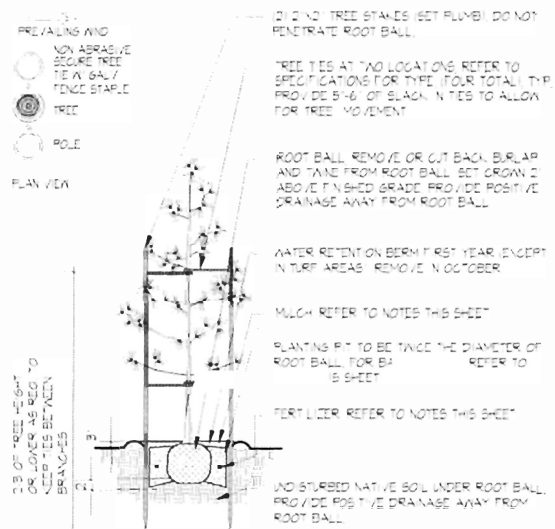 PREVAILING WIND
NON ABRASIVE
SECURE TREE
TIE W/ GALV
FENCE STAPLE
TREE
POLE
PLAN VIEW
2/3 OF TREE HEIGHT
OR LOWER, AS REQ TO
KEEP TIES BETWEEN
BRANCHES
3"
2'
(2) 2"X2" TREE STAKES (SET PLUMB). DO NOT
PENETRATE ROOT BALL.
TREE TIES AT TWO LOCATIONS. REFER TO
SPECIFICATIONS FOR TYPE (FOUR TOTAL), TYP.
PROVIDE 5"-6" OF SLACK IN TIES TO ALLOW
FOR TREE MOVEMENT
ROOT BALL. REMOVE OR CUT BACK BURLAP
AND TWINE FROM ROOT BALL. SET CROWN 2"
ABOVE FINISHED GRADE. PROVIDE POSITIVE
DRAINAGE AWAY FROM ROOT BALL
WATER RETENTION BERM FIRST YEAR (EXCEPT
IN TURF AREAS) REMOVE IN OCTOBER
MULCH REFER TO NOTES THIS SHEET
PLANTING PIT TO BE TWICE THE DIAMETER OF
ROOT BALL, FOR REFER TO
SHEET
FERTILIZER REFER TO NOTES THIS SHEET
UNDISTURBED NATIVE SOIL UNDER ROOT BALL.
PROVIDE POSITIVE DRAINAGE AWAY FROM
ROOT BALL